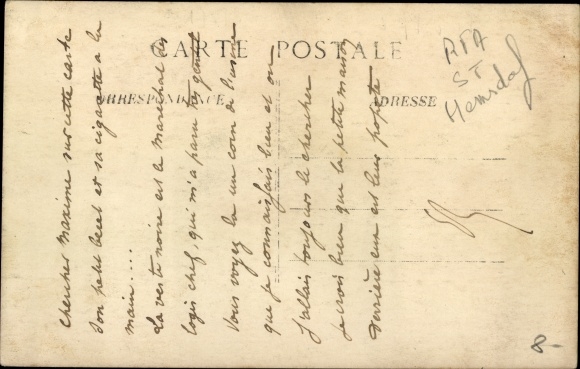 CARTE POSTALE
CORRESPONDANCE
ADRESSE
Chercher Maxime sur cette carte
son petit beret et sa cigarette a la
main....
La veste noire est le Marechal des
logis chef, qui m'a paru tres gentil
Vous voyez la un coin de l'usine
que je connaissais bien et ou
j'allais toujours le chercher
Je crois bien que la petite maison
derrière eux est leur popote
RTA
ST
8-